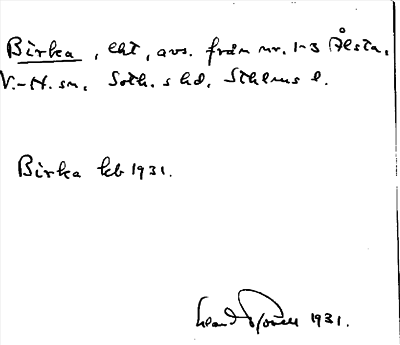 Birka, lht, avs. från nr. 1-3 Ålsta,
V.-H. sn, Soth. s hd, Sthlms l.
Birka kb 1931.
1931.